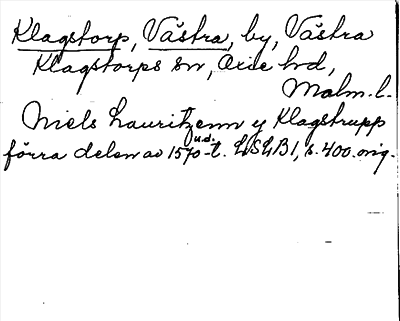 Klagstorp, Västra, by, Västra
Klagstorps sn, Oxie hd,
Malm. l.
Niels Lauritzenn y Klagstrupp
u.d.
förra delen av 1570-t. LSLB1, s. 400. orig.